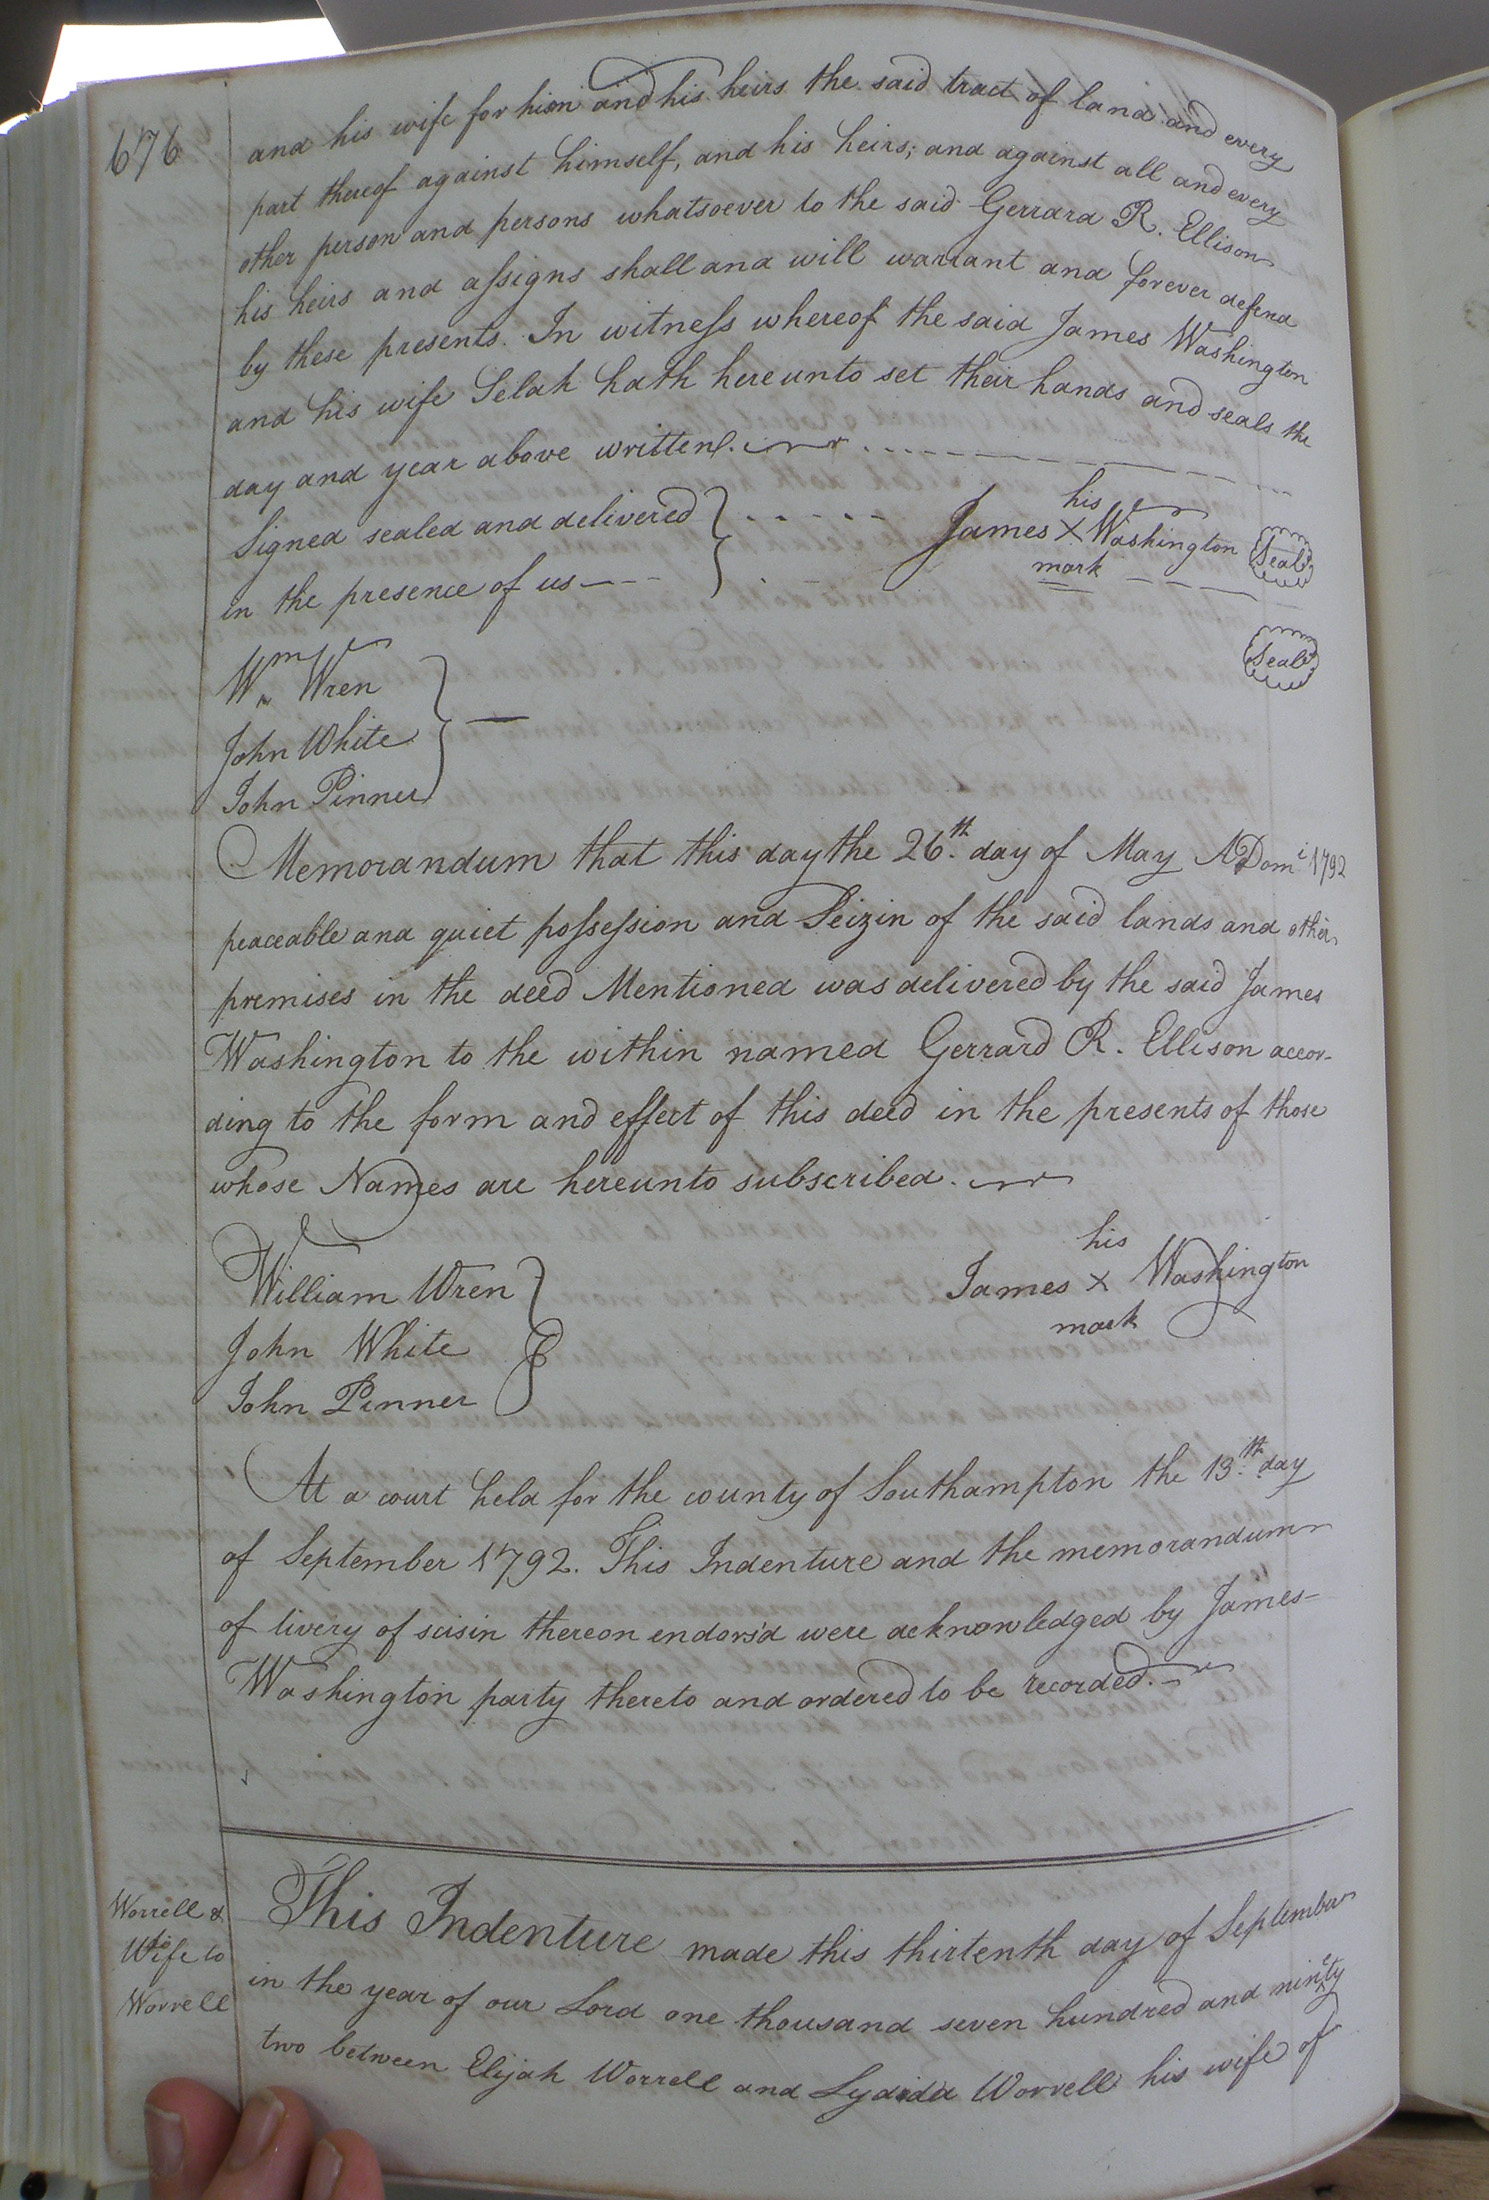 676
and his wife for him and his heirs the said tract of land and every
part thereof against himself, and his heirs; and against all and every
other person and persons whatsoever to the said Gerrard R. Ellison
his heirs and assigns shall and will warrant and forever defend
by these presents. In witness whereof the said James Washington
and his wife Selah hath hereunto set their hands and seals the
day and year above written.
Signed sealed and delivered
in the presence of us
his
James X Washington Seal
mark
Seal
Wm Wren
John White
John Pinner
Memorandum that this day the 26th. day of May A Domi 1792
peaceable and quiet possession and Seizin of the said lands and other
premises in the deed Mentioned was delivered by the said James
Washington to the within named Gerrard R. Ellison accor-
ding to the form and effect of this deed in the presents of those
whose Names are hereunto subscribed.
his
James X Washington
mark
William Wren
John White
John Pinner
At a court held for the county of Southampton the 13th. day
of September 1792. This Indenture and the memorandum
of livery of seisin thereon endors'd were acknowledged by James
Washington party thereto and ordered to be recorded.
Worrell &
Wife to
Worrell
This Indenture made this thirtenth day of September
in the year of our Lord one thousand seven hundred and ninety
two between Elijah Worrell and Lydida Worrell his wife of